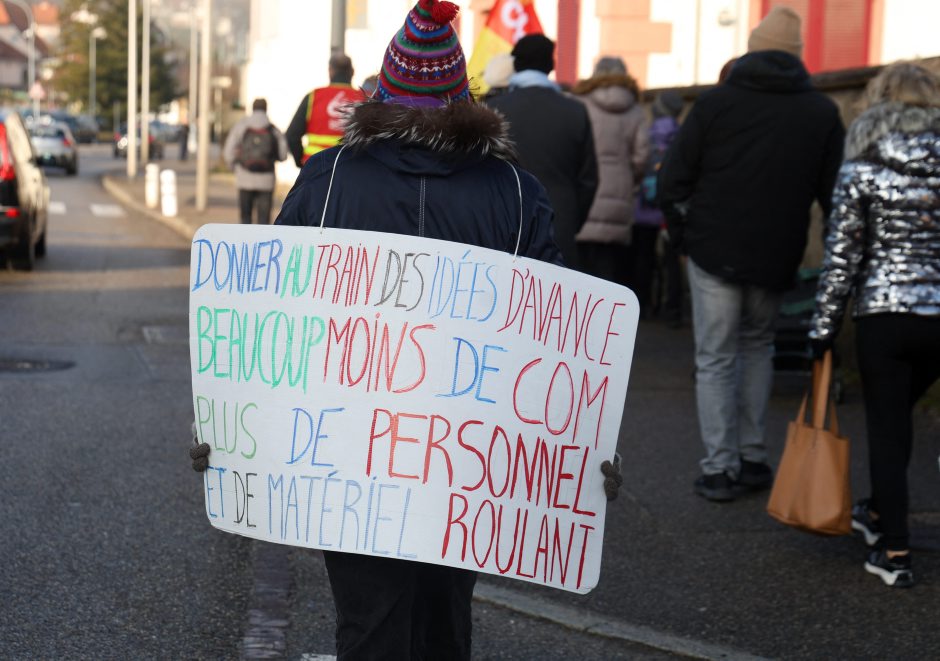 DONNER AU TRAIN DES IDÉES D'AVANCE
BEAUCOUP MOINS DE COM
PLUS DE PERSONNEL
ET DE MATÉRIEL ROULANT